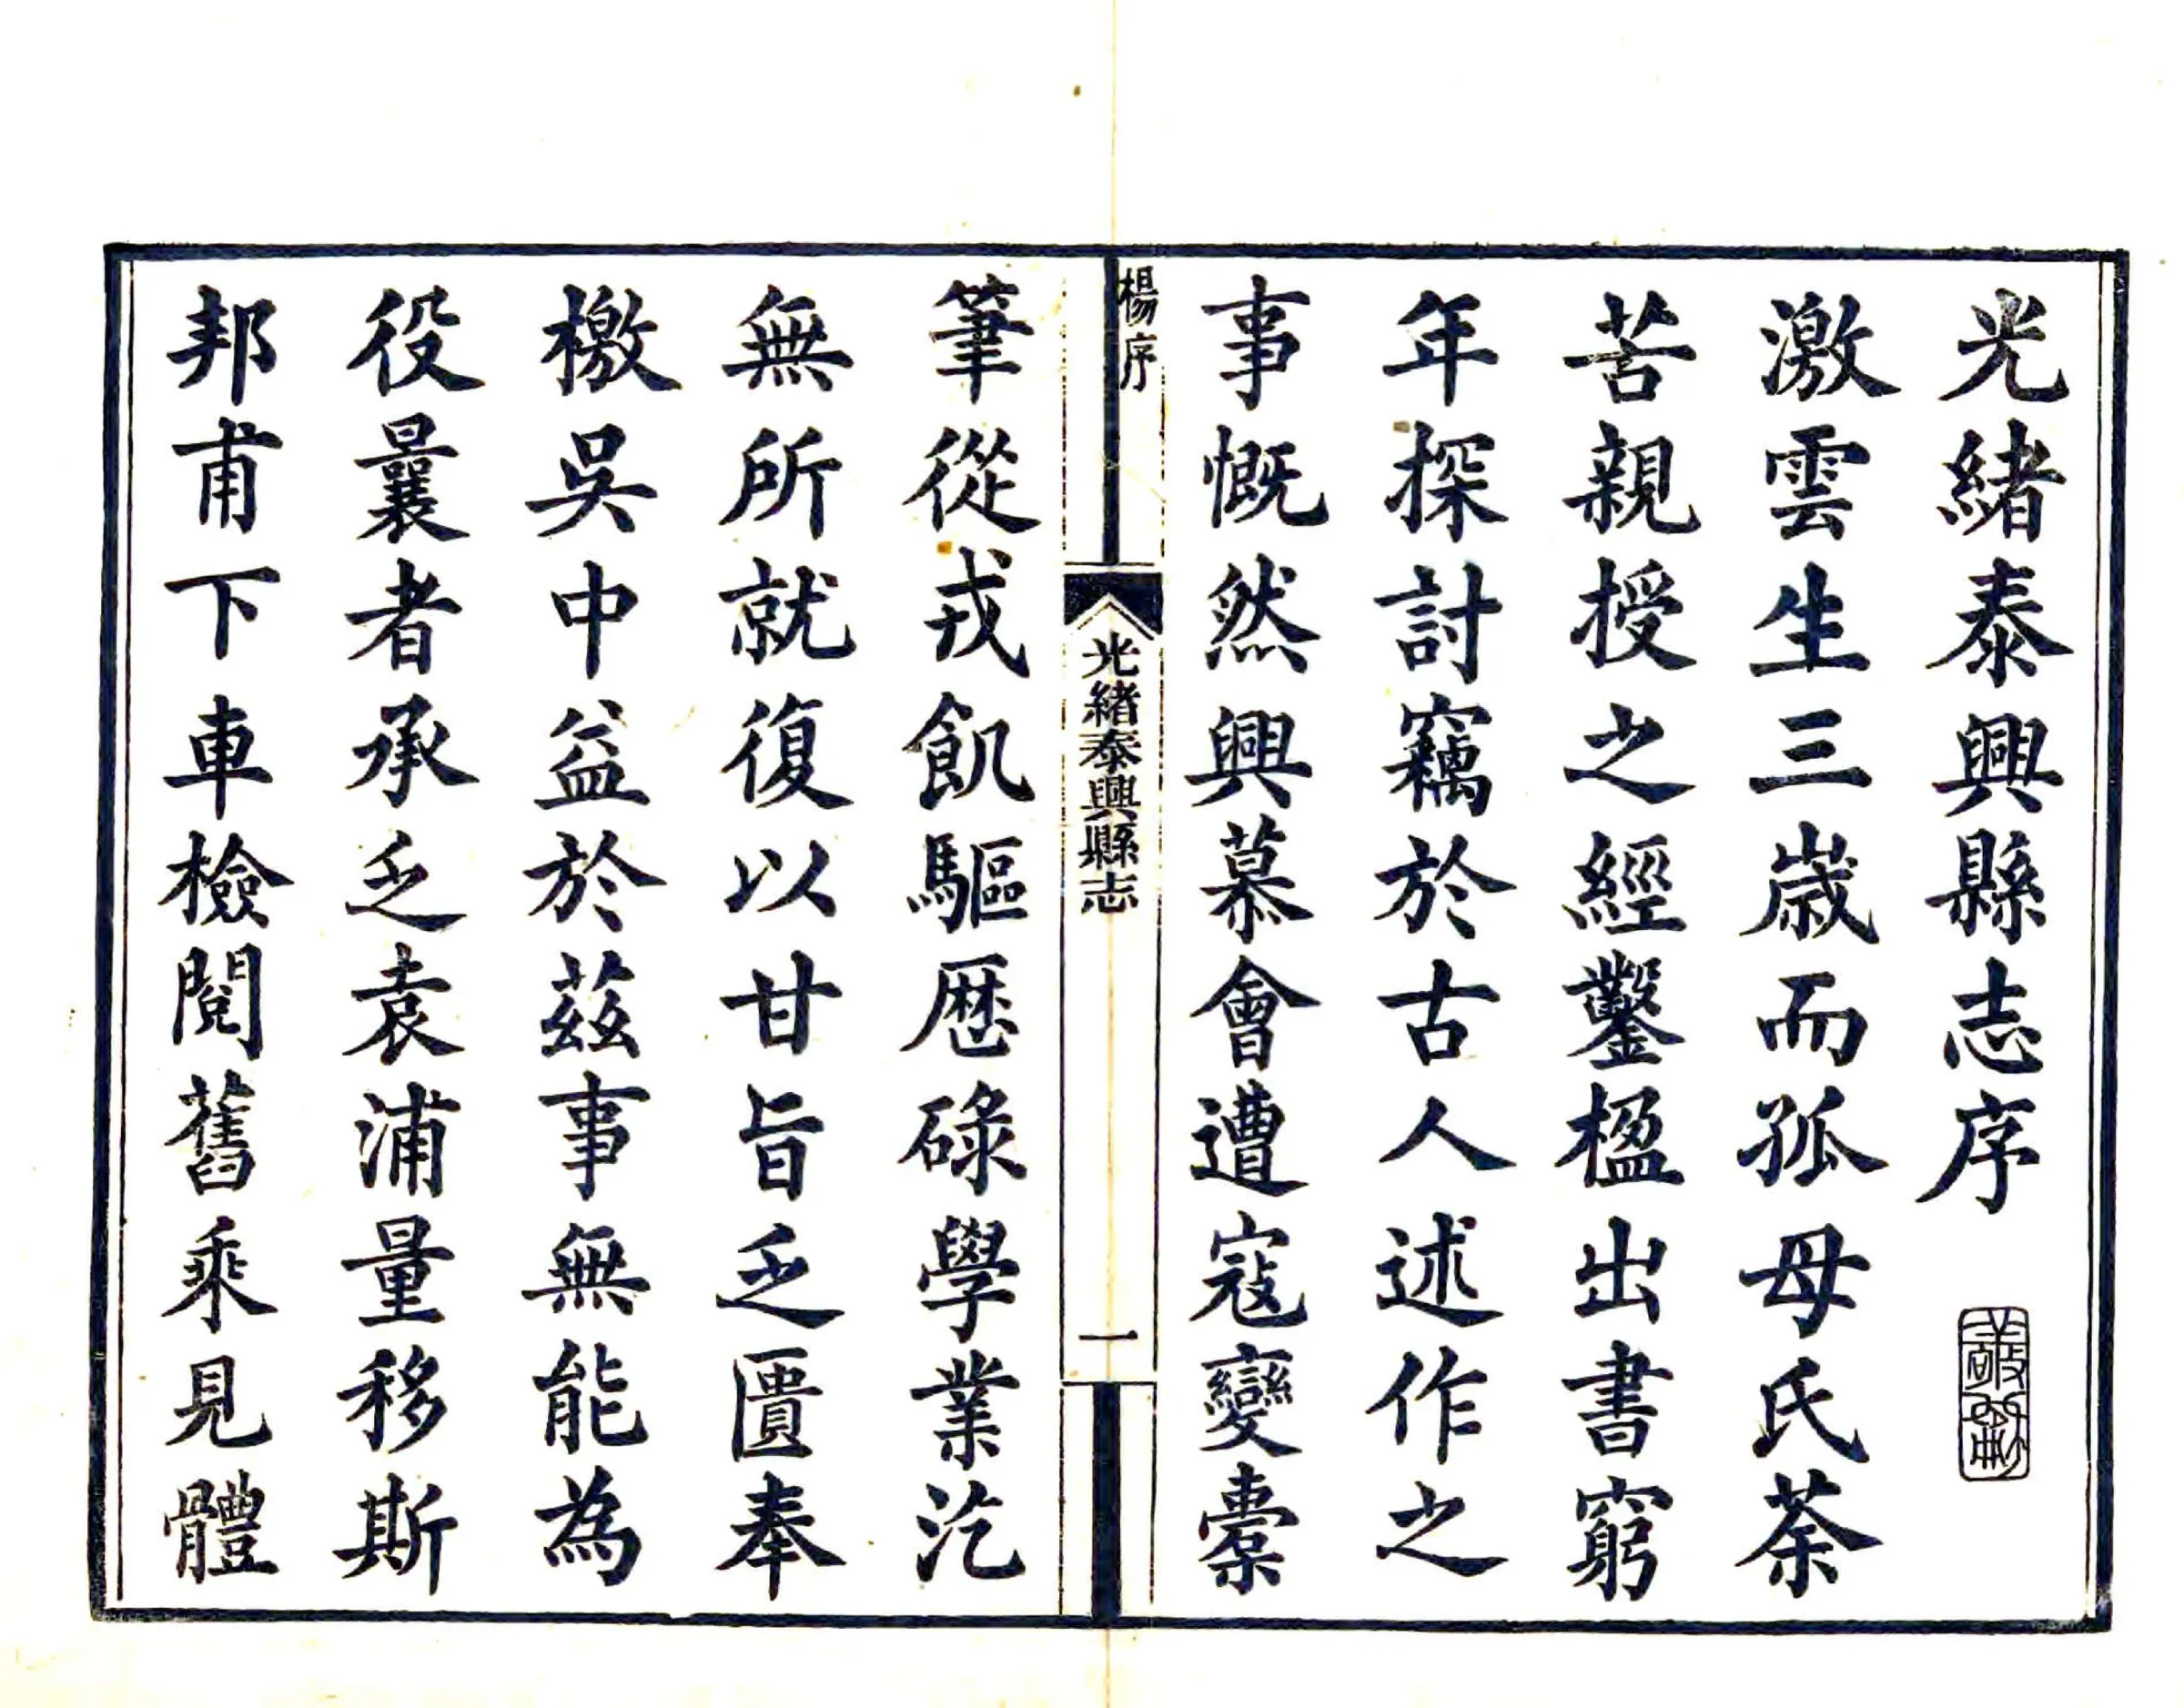 光緒泰興縣志序
激雲生三歲而孤母氏荼
苦親授之經鑿楹出書窮
年探討竊於古人述作之
事慨然興慕會遭寇變橐
楊序
光緒泰興縣志
一
筆從戎飢驅歷碌學業汔
無所就復以甘旨乏匱奉
檄吳中益於茲事無能為
役曩者承乏袁浦量移斯
邦甫下車檢閱舊乘見體